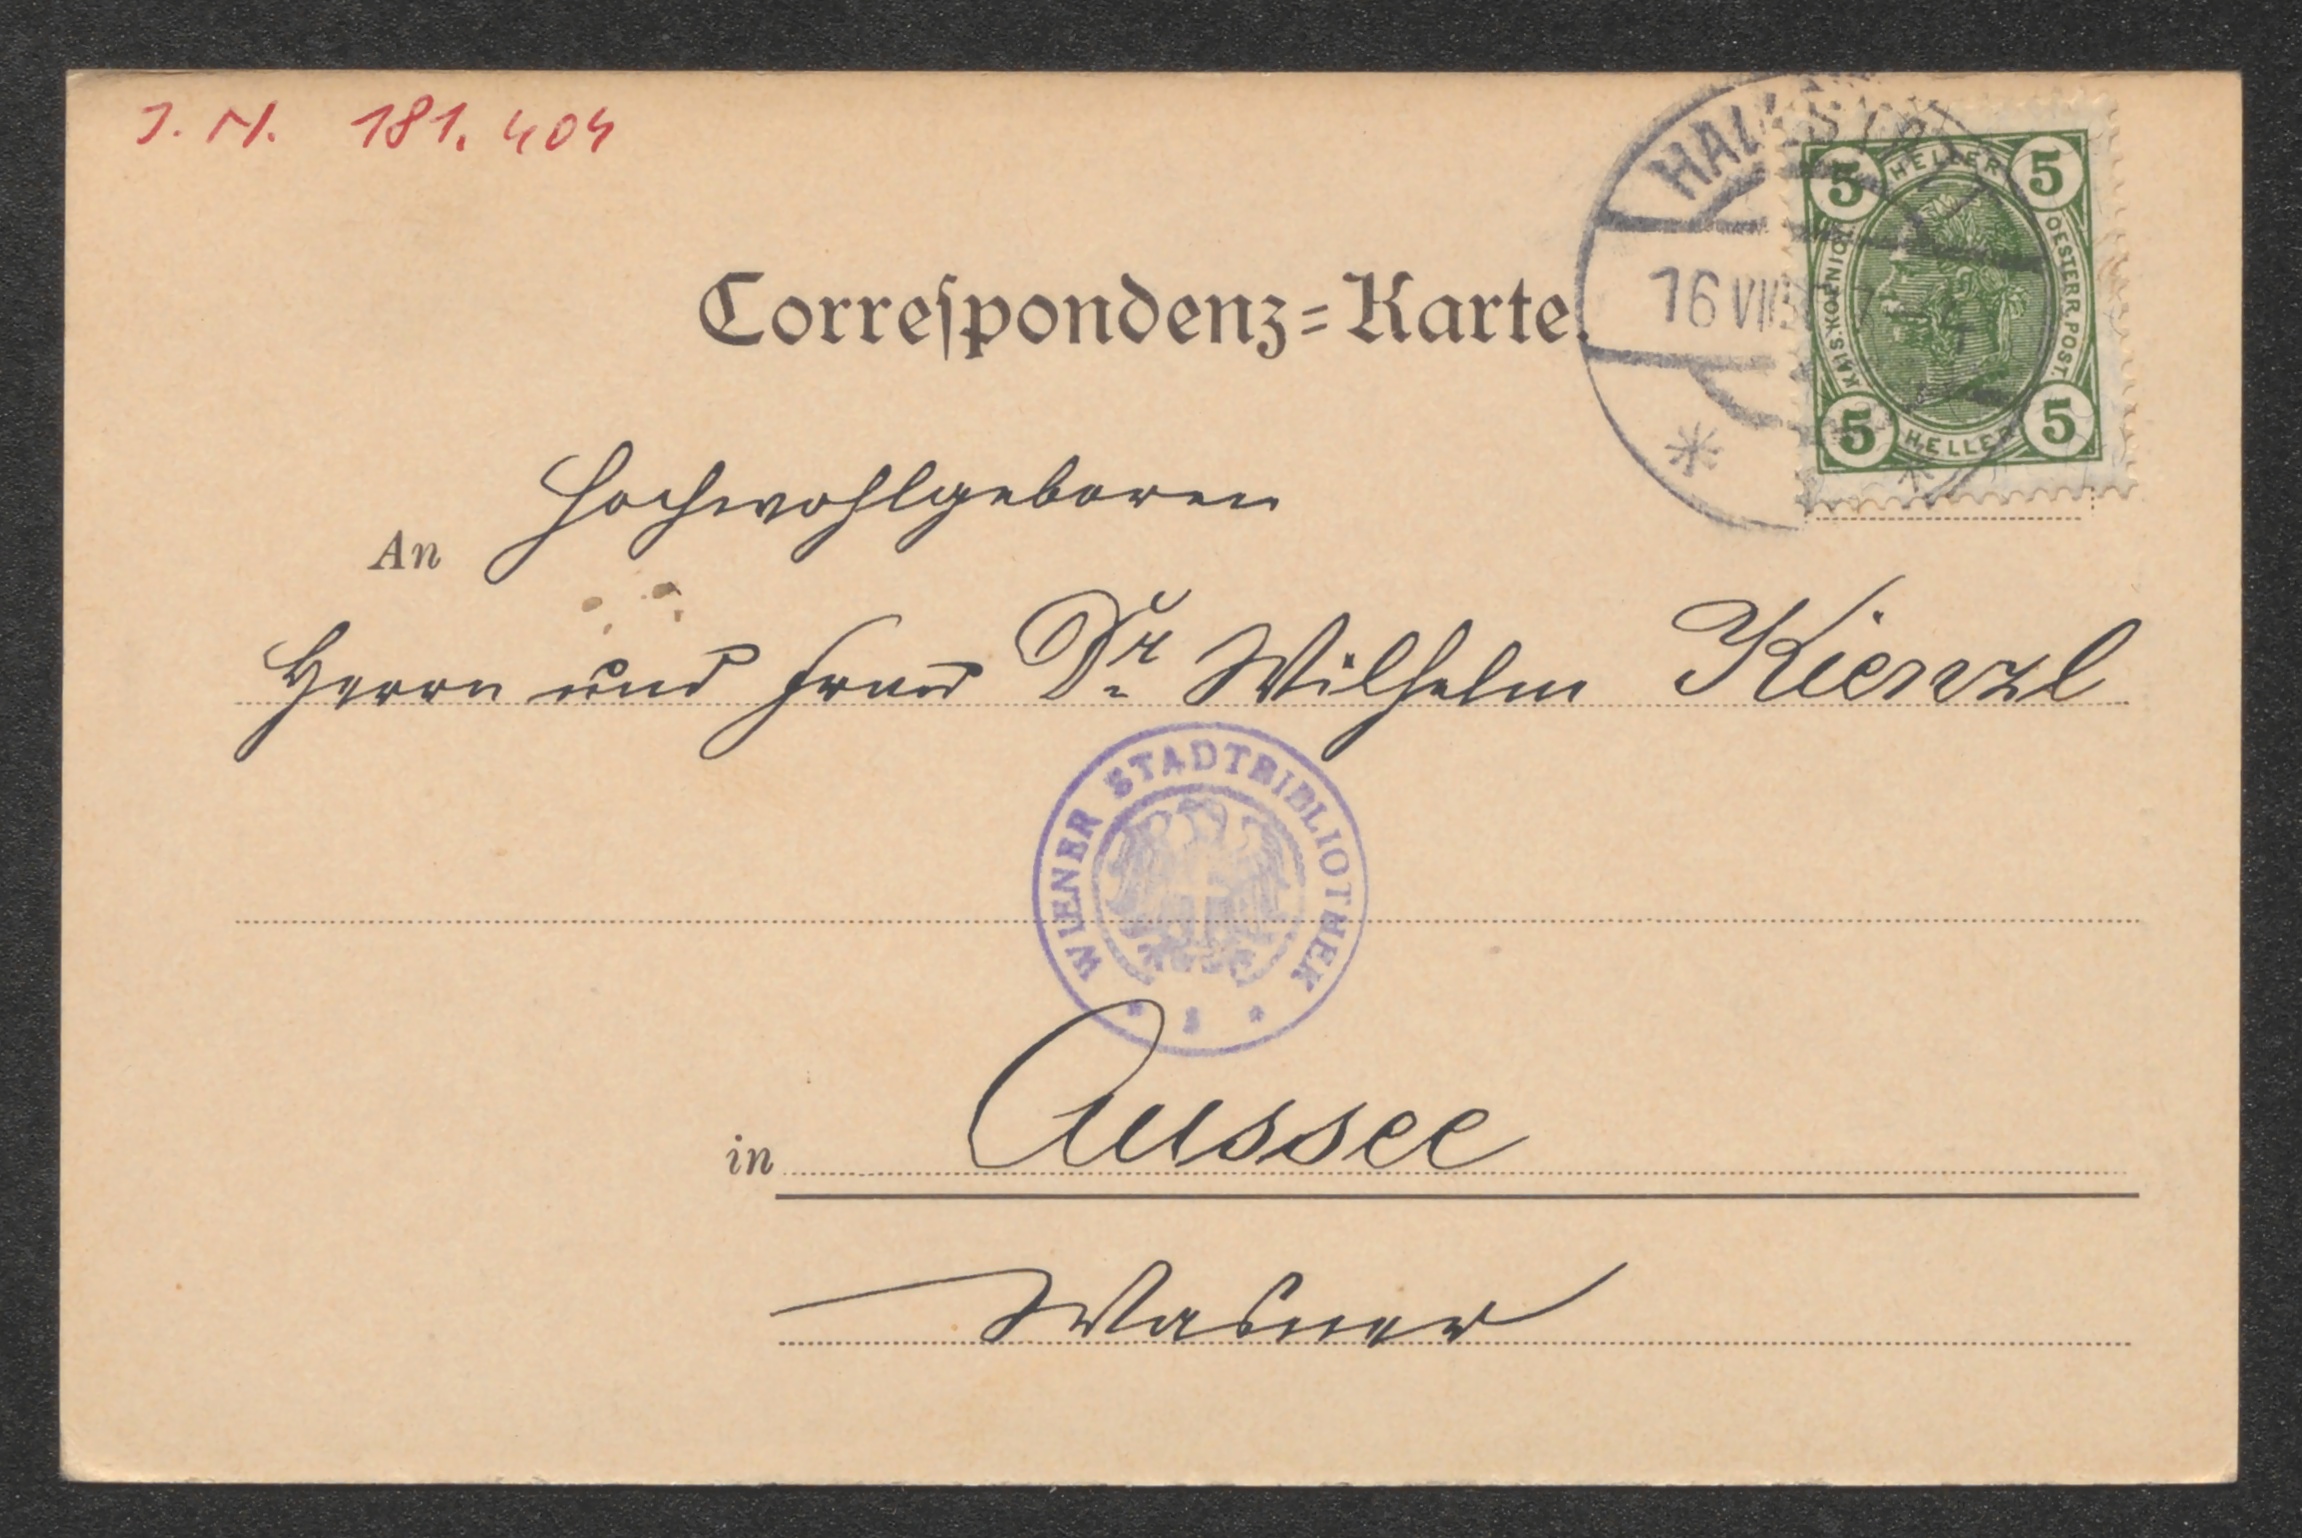 J. N. 181.404
HALLSTATT
16 VII
HELLER
5 5
KAIS. KOENIGL.
OESTERR. POST.
5 5
HELLER
Correſpondenz=Karte.
An Hochwohlgeboren
Herrn und Frau Dr. Wilhelm Kienzl
WIENER STADTBIBLIOTHEK
in Aussee
Wasner